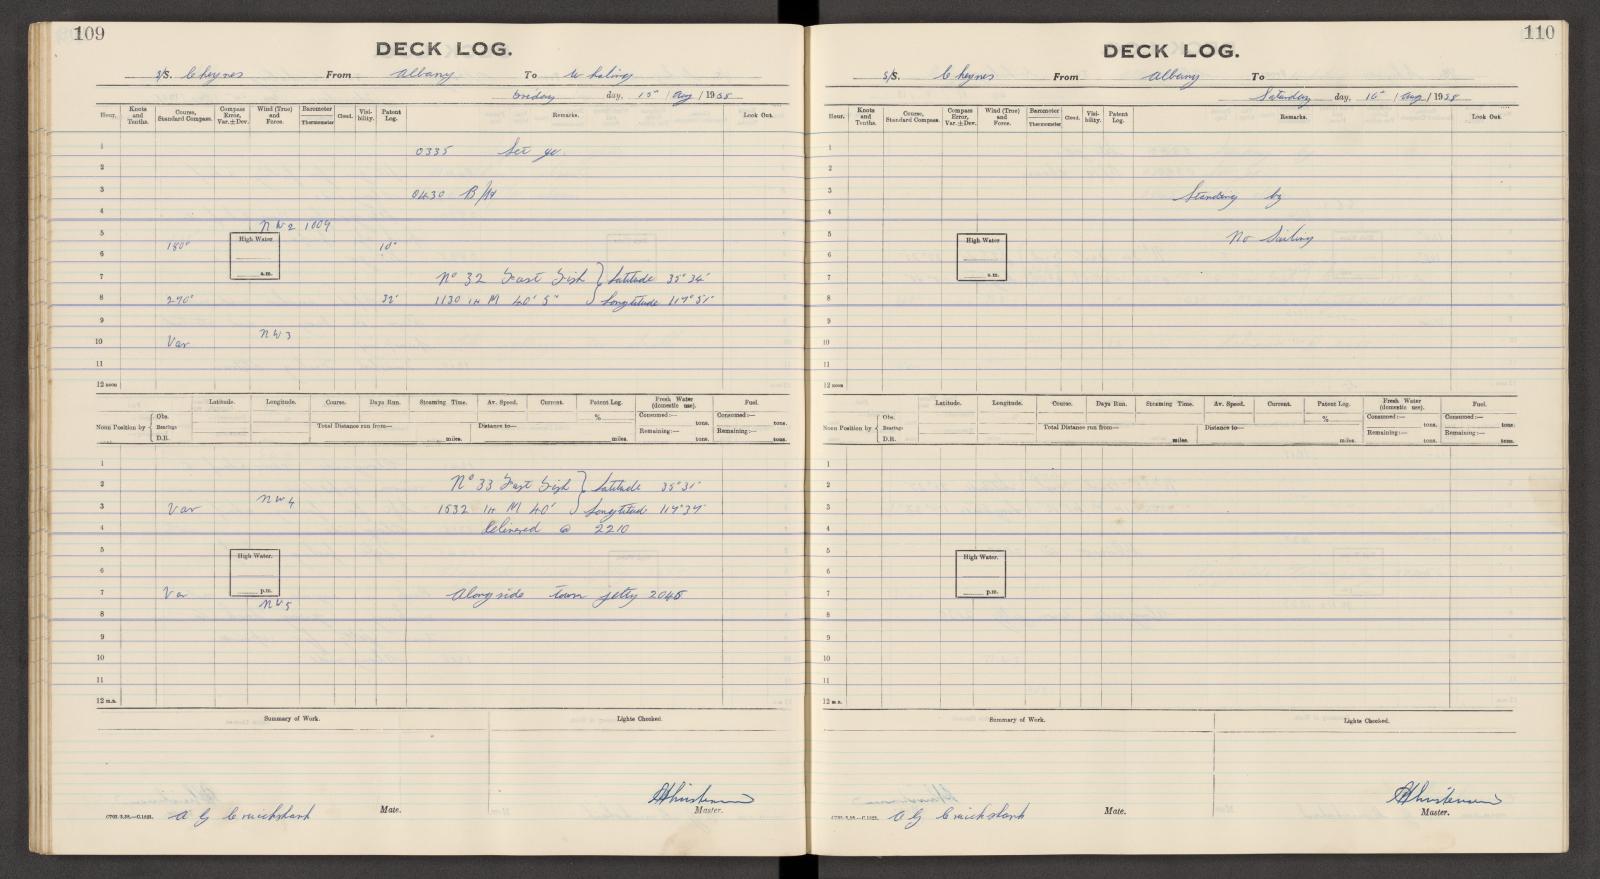 109
DECK LOG.
S/S. Cheynes From Albany To Whaling
Friday day, 15" / Aug / 1958
Hour. Knots and Tenths. Course, Standard Compass. Compass Error, Var. ± Dev. Wind (True) and Force. Barometer Thermometer Cloud. Visibility. Patent Log. Remarks. Look Out.
1 0335
2
3 0430 B/W
4
5 NW2 1009
High Water
6 180° 10"
a.m.
7 No 32 Fast Fish } Latitude 35° 34'
8 270° 32' 1130 in M 40' S" } Longtitude 117° 51'
9
10 Var NW3
11
12 noon
Latitude. Longitude. Course. Days Run. Steaming Time. Av. Speed. Current. Patent Log. Fresh Water (domestic use). Fuel.
Noon Position by { Obs. % Consumed:— tons. Consumed:— tons.
Bearings Total Distance run from— miles. Distance to— miles. Remaining:— tons. Remaining:— tons.
D.R.
1
2 No 33 Fast Fish } Latitude 35° 31'
3 Var NW4 1532 in M 40' } Longtitude 117° 37'
4 Delivered @ 2210
5
High Water.
6
7 Var p.m. Alongside town jetty 2045
NW5
8
9
10
11
12 m.n.
Summary of Work. Lights Checked.
A G Cruickshank Mate. Christensen Master.
C702/3.58.—C.1823.
110
DECK LOG.
S/S. Cheynes From Albany To
Saturday day, 16" / Aug / 1958
Hour. Knots and Tenths. Course, Standard Compass. Compass Error, Var. ± Dev. Wind (True) and Force. Barometer Thermometer Cloud. Visibility. Patent Log. Remarks. Look Out.
1
2
3 Standing by
4
5 No Sailing
High Water
6
a.m.
7
8
9
10
11
12 noon
Latitude. Longitude. Course. Days Run. Steaming Time. Av. Speed. Current. Patent Log. Fresh Water (domestic use). Fuel.
Noon Position by { Obs. % Consumed:— tons. Consumed:— tons.
Bearings Total Distance run from— miles. Distance to— miles. Remaining:— tons. Remaining:— tons.
D.R.
1
2
3
4
5
High Water.
6
7 p.m.
8
9
10
11
12 m.n.
Summary of Work. Lights Checked.
A G Cruickshank Mate. Christensen Master.